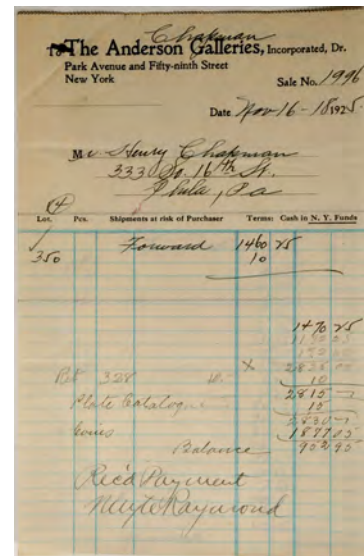 Chapman
The Anderson Galleries, Incorporated, Dr.
Park Avenue and Fifty-ninth Street
New York
Sale No. 1996
Date Nov 16-18 1925.
Mr Henry Chapman
333 So. 16th St.,
Phila, Pa
4
Lot. Pcs. Shipments at risk of Purchaser Terms: Cash in N. Y. Funds
Forward 1460 25
350 10
1470 25
X 2825
Ret 328 10
2815
Plate Catalogue 15
2830
Coins 1877 05
Balance 952 95
Rec'd Payment
Wayte Raymond